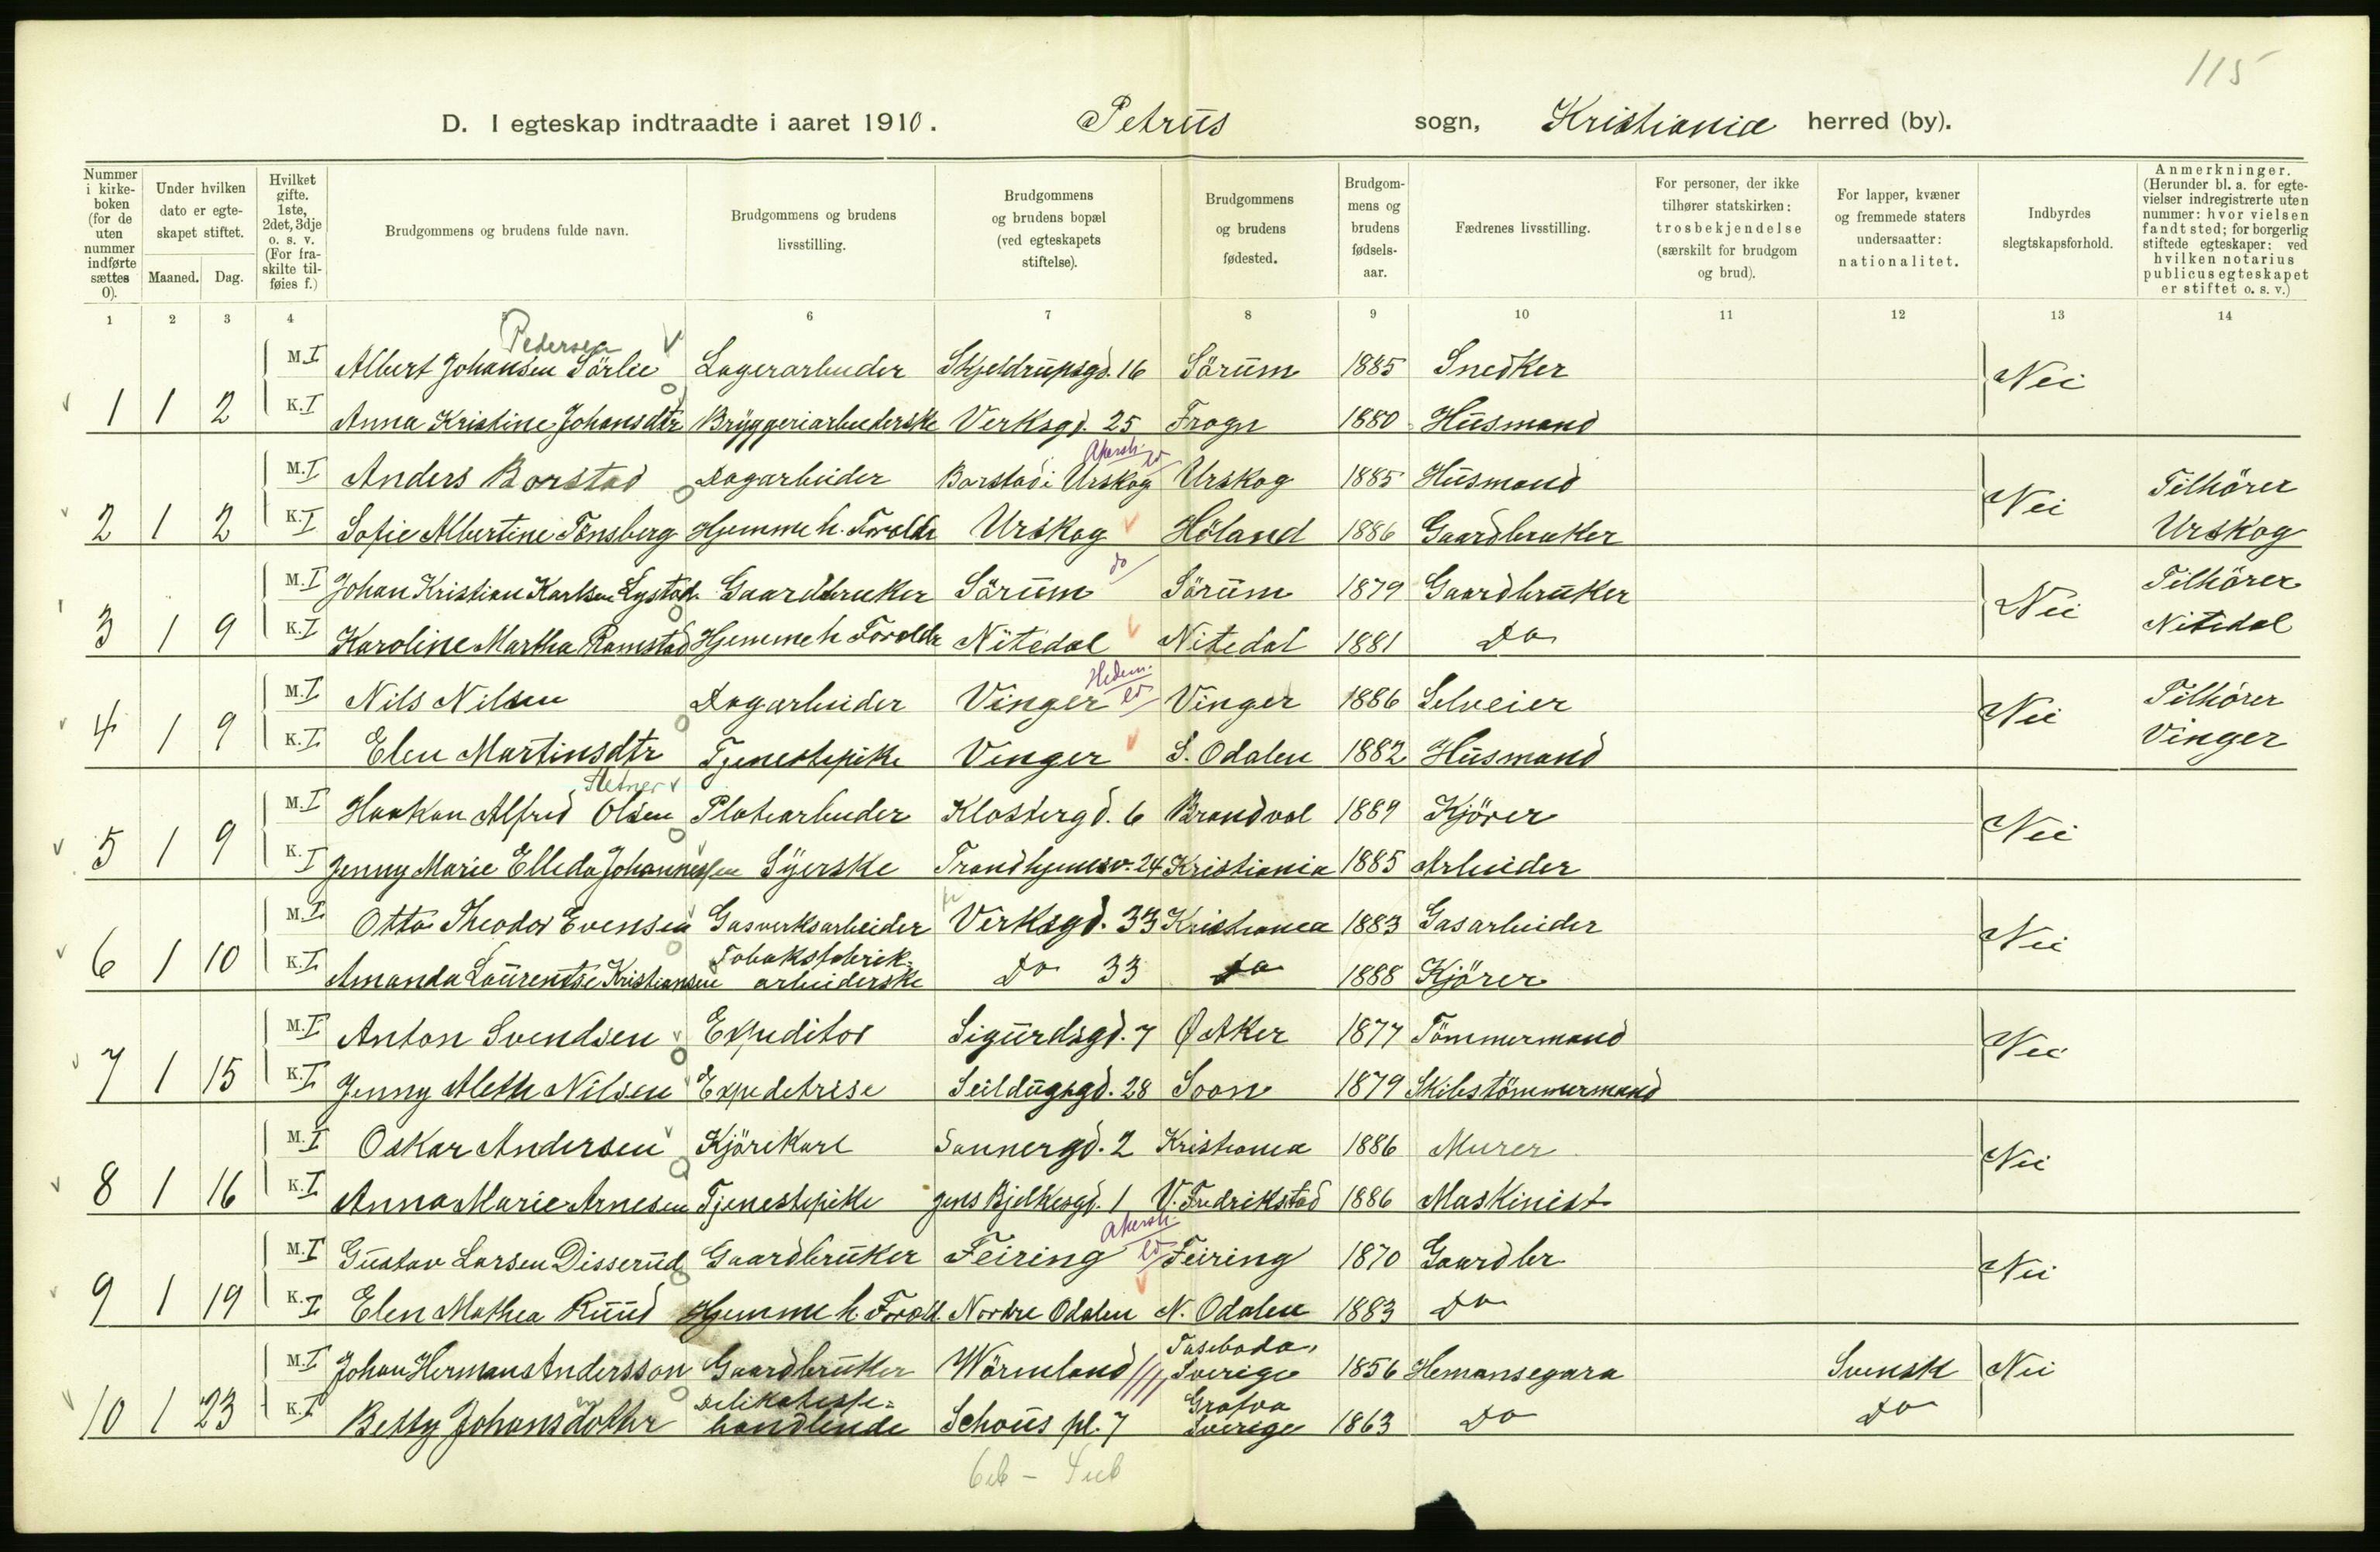 115
D. I egteskap indtraadte i aaret 1910. Petrus sogn, Kristiania herred (by).
Nummer i kirkeboken (for de uten nummer indførte sættes 0).
Under hvilken dato er egteskapet stiftet.
Maaned. Dag.
Hvilket gifte. 1ste, 2det, 3dje o. s. v. (For fraskilte tilføies f.)
Brudgommens og brudens fulde navn.
Brudgommens og brudens livsstilling.
Brudgommens og brudens bopæl (ved egteskapets stiftelse).
Brudgommens og brudens fødested.
Brudgommens og brudens fødselsaar.
Fædrenes livsstilling.
For personer, der ikke tilhører statskirken: trosbekjendelse (særskilt for brudgom og brud).
For lapper, kvæner og fremmede staters undersaatter: nationalitet.
Indbyrdes slegtskapsforhold.
Anmerkninger. (Herunder bl. a. for egtevielser indregistrerte uten nummer: hvor vielsen fandt sted; for borgerlig stiftede egteskaper: ved hvilken notarius publicus egteskapet er stiftet o. s. v.)
1 2 3 4 5 6 7 8 9 10 11 12 13 14
Pedersen
M. I Albert Johansen Sörlie Lagerarbeider Skjeldrupsgd. 16 Sörum 1885 Snedker Nei
1 1 2 K. I Anna Kristine Johansdtr Bryggeriarbeiderske Verksgd. 25 Frogn 1880 Husmand
Akersh.
M. I Anders Borstad Dagarbeider Borstad i Urskog Urskog 1885 Husmand Nei Tilhörer
2 1 2 K. I Sofie Albertine Tönsberg Hjemme h. Foreldr Urskog Höland 1886 Gaardbruker Urskog
do
M. I Johan Kristian Karlsen Lystad Gaardbruker Sörum Sörum 1879 Gaardbruker Nei Tilhörer
3 1 9 K. I Karoline Martha Ramstad Hjemme h Foreldr Nitedal Nitedal 1881 Do Nitedal
Hedem.
M. I Nils Nilsen Dagarbeider Vinger Vinger 1886 Selveier Nei Tilhörer
4 1 9 K. I Elen Martinsdtr Tjenestepike Vinger S. Odalen 1882 Husmand Vinger
M. I Haakon Alfred Olsen Platearbeider Klostergd. 6 Brandval 1889 Kjörer Nei
5 1 9 K. I Jenny Marie Elleda Johannessen Syerske Trondhjemsv. 24 Kristiania 1885 Arbeider
M. I Otto Theodor Evensen Gasverksarbeider Verksgd. 33 Kristiania 1883 Gasarbeider Nei
6 1 10 K. I Amanda Laurentse Kristiansen Tobaksfabrik-
arbeiderske Do 33 Do 1888 Kjörer
M. I Anton Svendsen Expeditor Sigurdsgd. 7 Ø Aker 1877 Tömmermand Nei
7 1 15 K. I Jenny Aleth Nilsen Expeditrise Seildugsgd. 28 Soon 1879 Skibstömmermand
M. I Oskar Andersen Kjörekarl Sannergd. 2 Kristiania 1886 Murer Nei
8 1 16 K. I Anna Marie Arnesen Tjenestepike Jens Bjelkesgd. 1 V. Fredrikstad 1886 Maskinist
Akersh.
M. I Gustav Larsen Disserud Gaardbruker Feiring Feiring 1870 Gaardbr. Nei
9 1 19 K. I Elen Mathea Ruud Hjemme h. Foreld. Nordre Odalen N. Odalen 1883 Do
M. I Johan Herman Andersson Gaardbruker Wärmland Sverige 1856 Hemansegara Svensk Nei
10 1 23 K. I Betty Johansdotter Delikatesse-
handlende Schous pl. 7 Grafva
Sverige 1863 Do Do